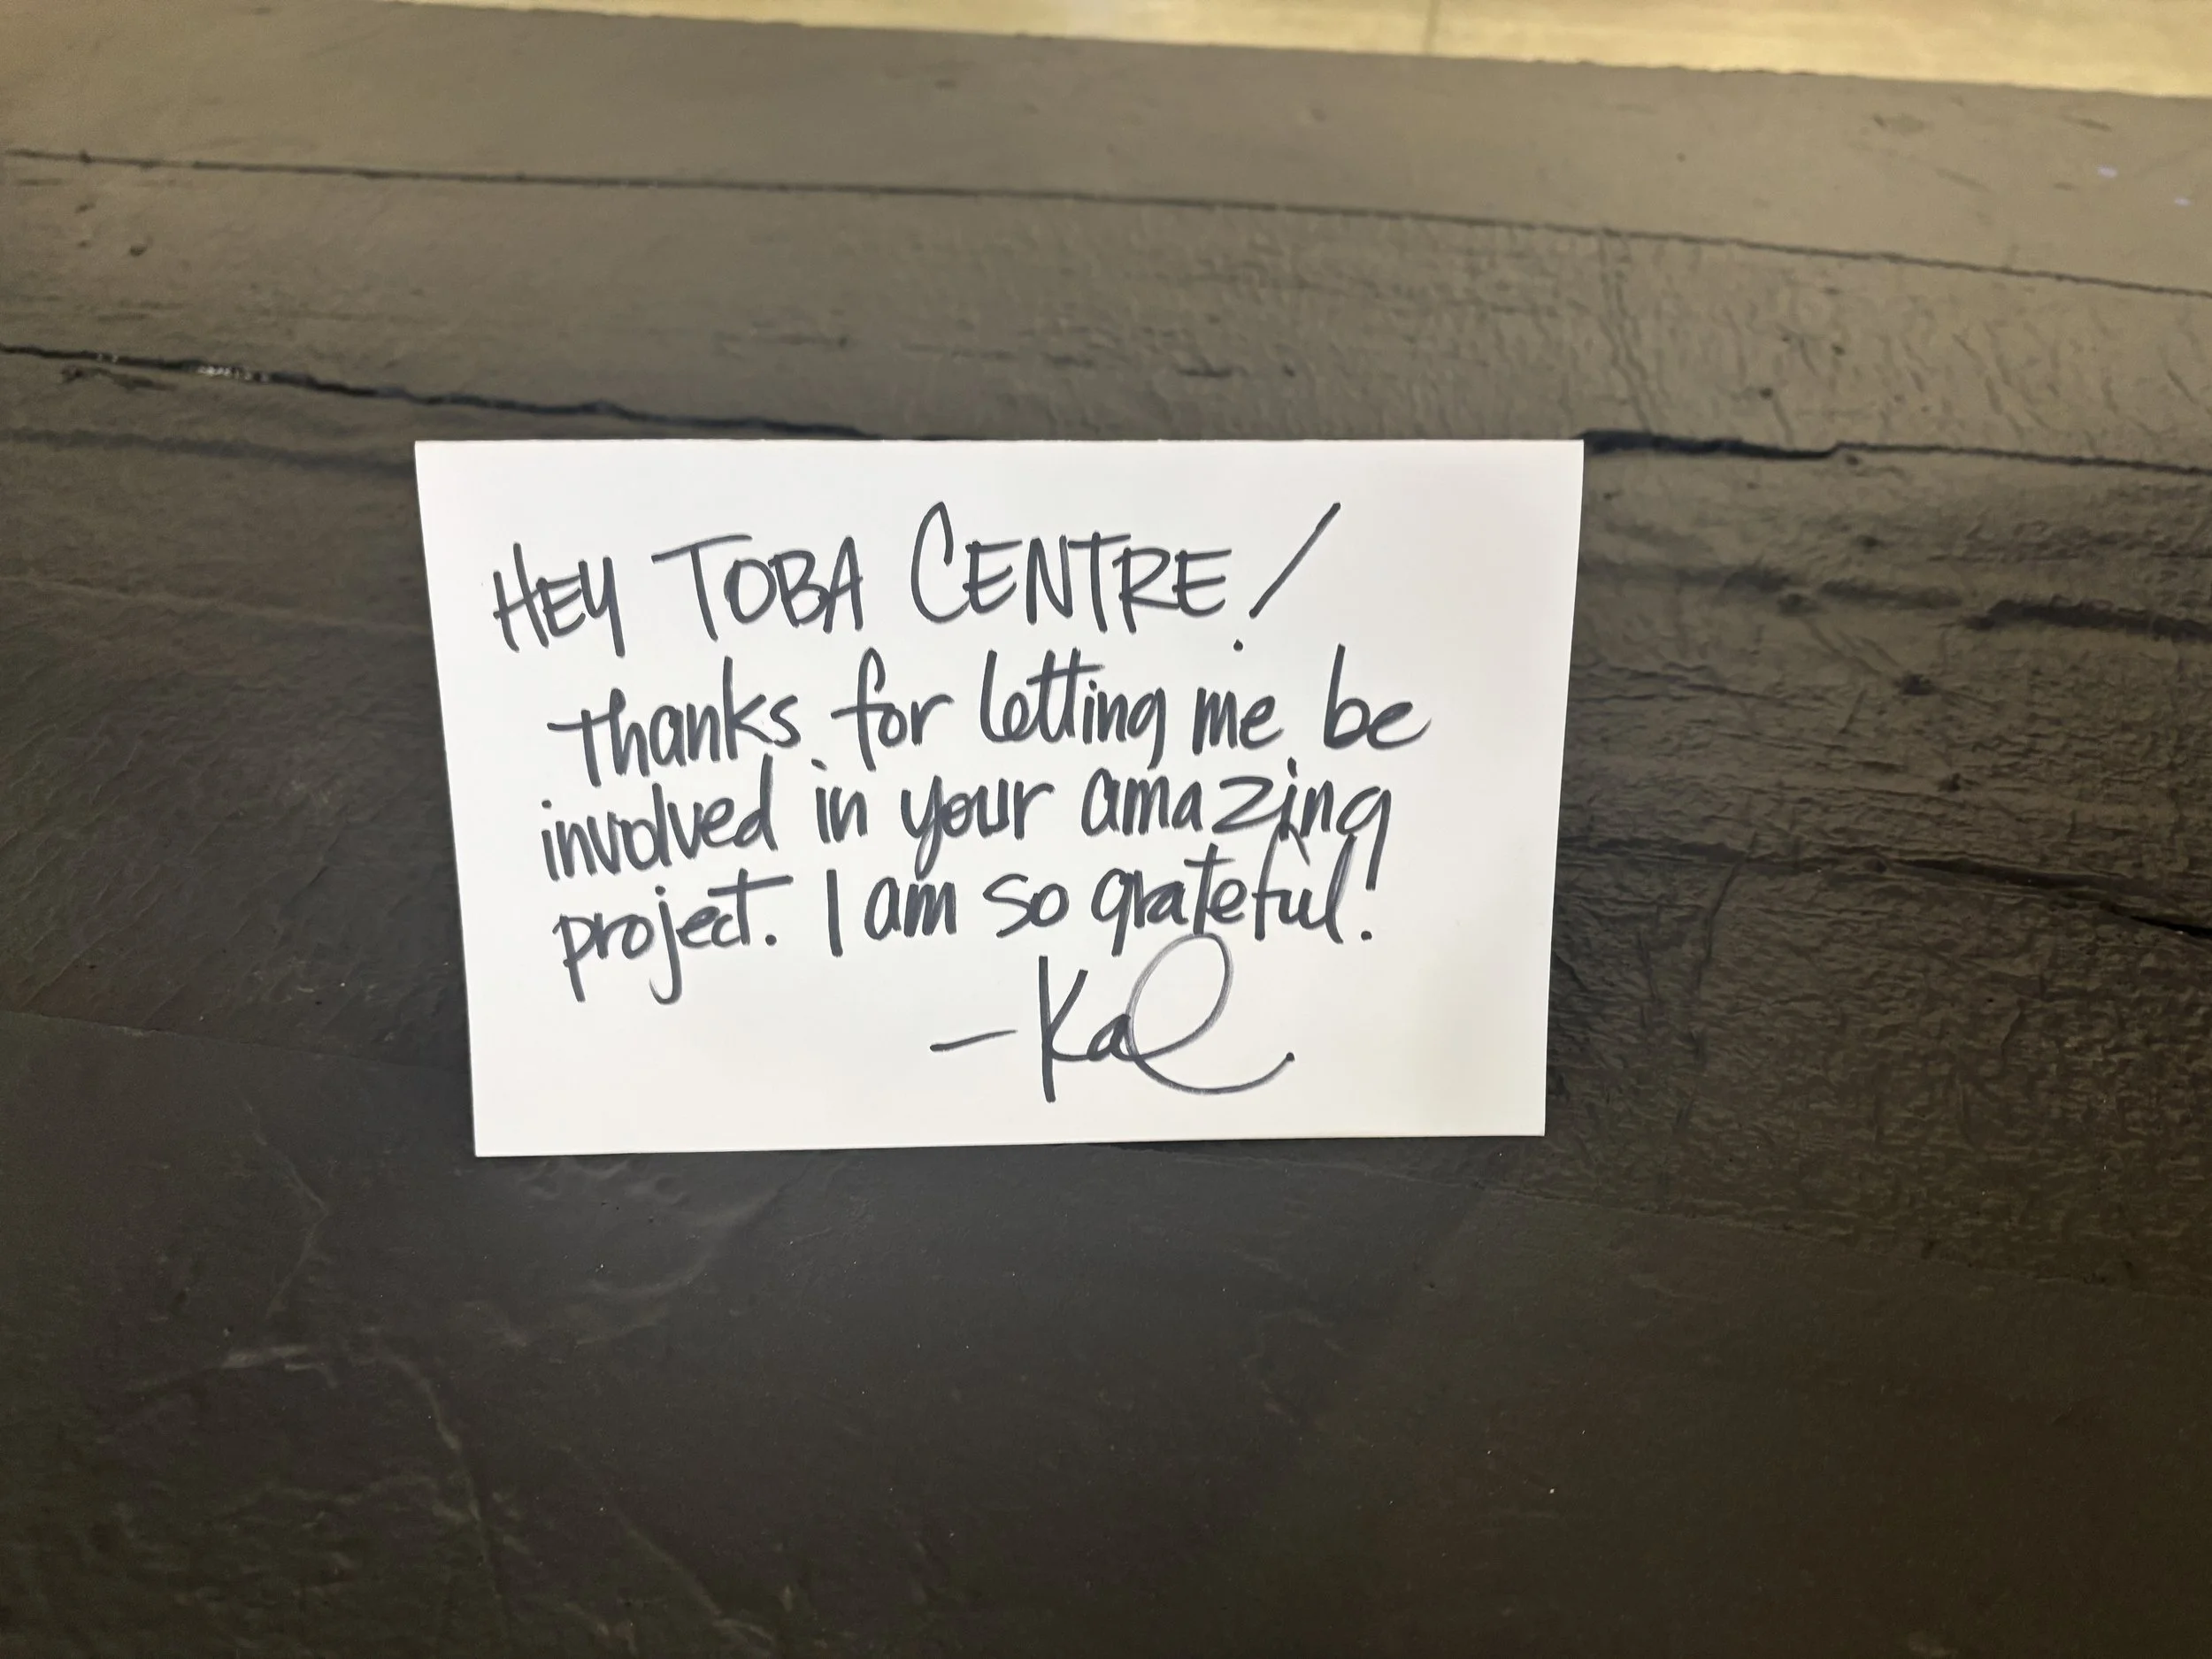 HEY TOBA CENTRE!
Thanks for letting me be
involved in your amazing
project. I am so grateful!
- Kal